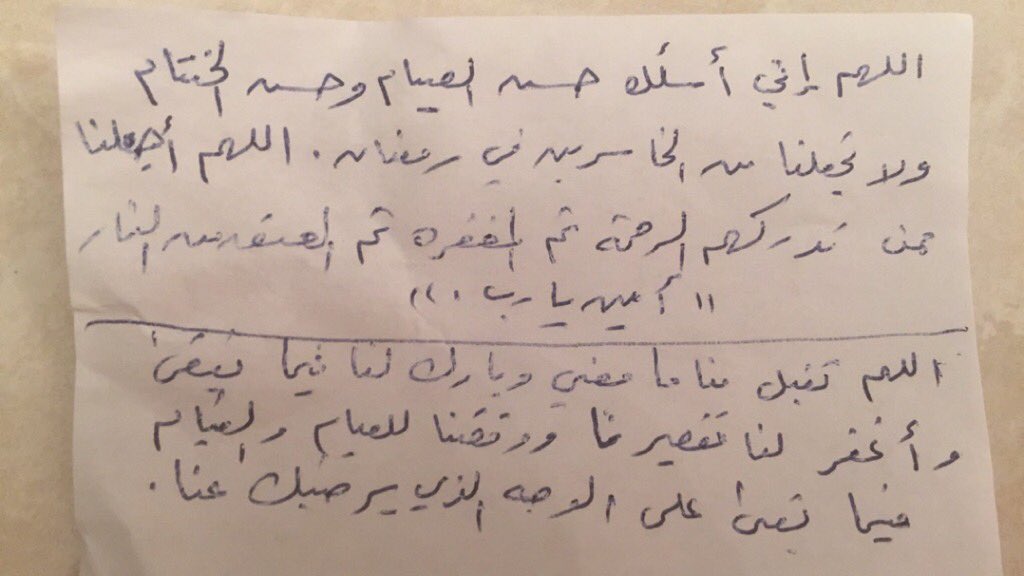 اللهم إني أسئلك حسن الصيام وحسن الختام
ولا تجعلنا من الخاسرين في رمضان . اللهم أجعلنا
ممن تدركهم الرحمة ثم المغفره ثم العتق من النار
" آمين يا رب . "
اللهم تقبل منا ما مضى وبارك لنا فيما تبقى
وأغفر لنا تقصيرنا ووفقنا للصيام والقيام
فيما تبقى على الاجه الذي يرضيك عنا .